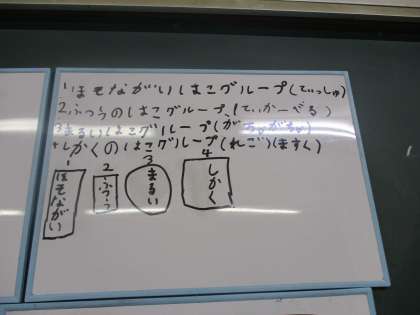 1ほそながいはこグループ(てぃっしゅ)
2.ふつうのはこグループ(てぃかーべる)
3まるいはこグループ(がちゃがちゃ)
4しかくのはこグループ(れご)(ますく)
1 2 3 4
ほそながい
ふつう
まるい
しかく